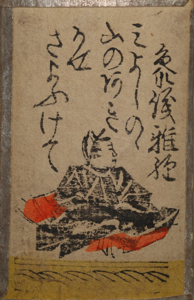 参議雅経
みよしの
山のあき
かせ
さよふけて